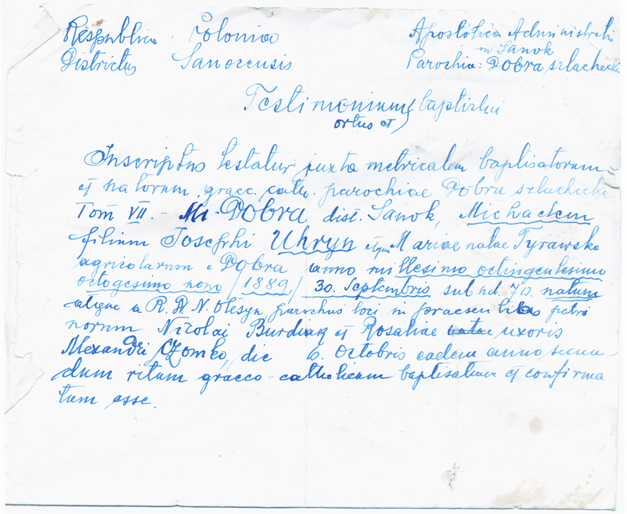 Respublica Polonia
Districtus Sanocensis
Apostolica Administrat
in Sanok
Parochia: Dobra szlachecka
Testimonium baptismi
ortus et
Inscriptus testatur juxta metricalem baptisatorum
et natorum, graec. cath. parochiae Dobra szlachecka
Tom VII. Dobra, dist. Sanok, Michaelem
filium Josephi Uhryn Mariae natae Tyrawska
agricolarum e Dobra anno millesimo octingentesimo
octogesimo nono /1889/ 30. Septembris sub nd. 70. natum
atque a R. D. N. Olesyn parochus loci in praesen patri
norum Nicolai Burdiak et Rosaliae uxoris
Alexandri Czomko, die 6. Octobris eadem anno, secun-
dum ritum graeco-catholicum baptisatum et confirma
tum esse.